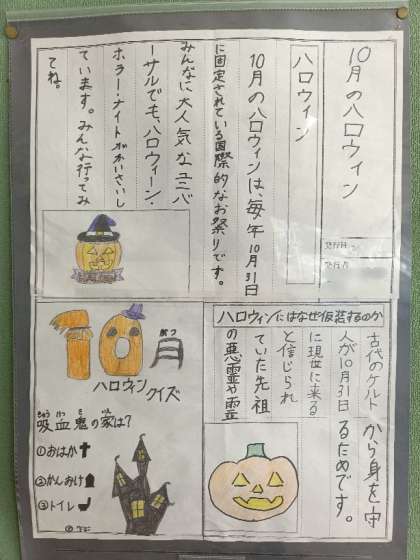 10月のハロウィン
発行日
発行者
ハロウィン
10月のハロウィンは、毎年10月31日
に固定されている国際的なお祭りです。
みんなに大人気なユニバ
ーサルでも、ハロウィーン・
ホラー・ナイトがかいさいし
ています。みんな行ってみ
てね。
ハロウィンにはなぜ仮装するのか
古代のケルト
人が10月31日
に現世に来る
と信じられ
ていた先祖
の悪霊や霊
から身を守
るためです。
10月
がつ
ハロウィン
クイズ
きゅう けつ き
吸血鬼の家は?
①おはか
②かんおけ
③トイレ